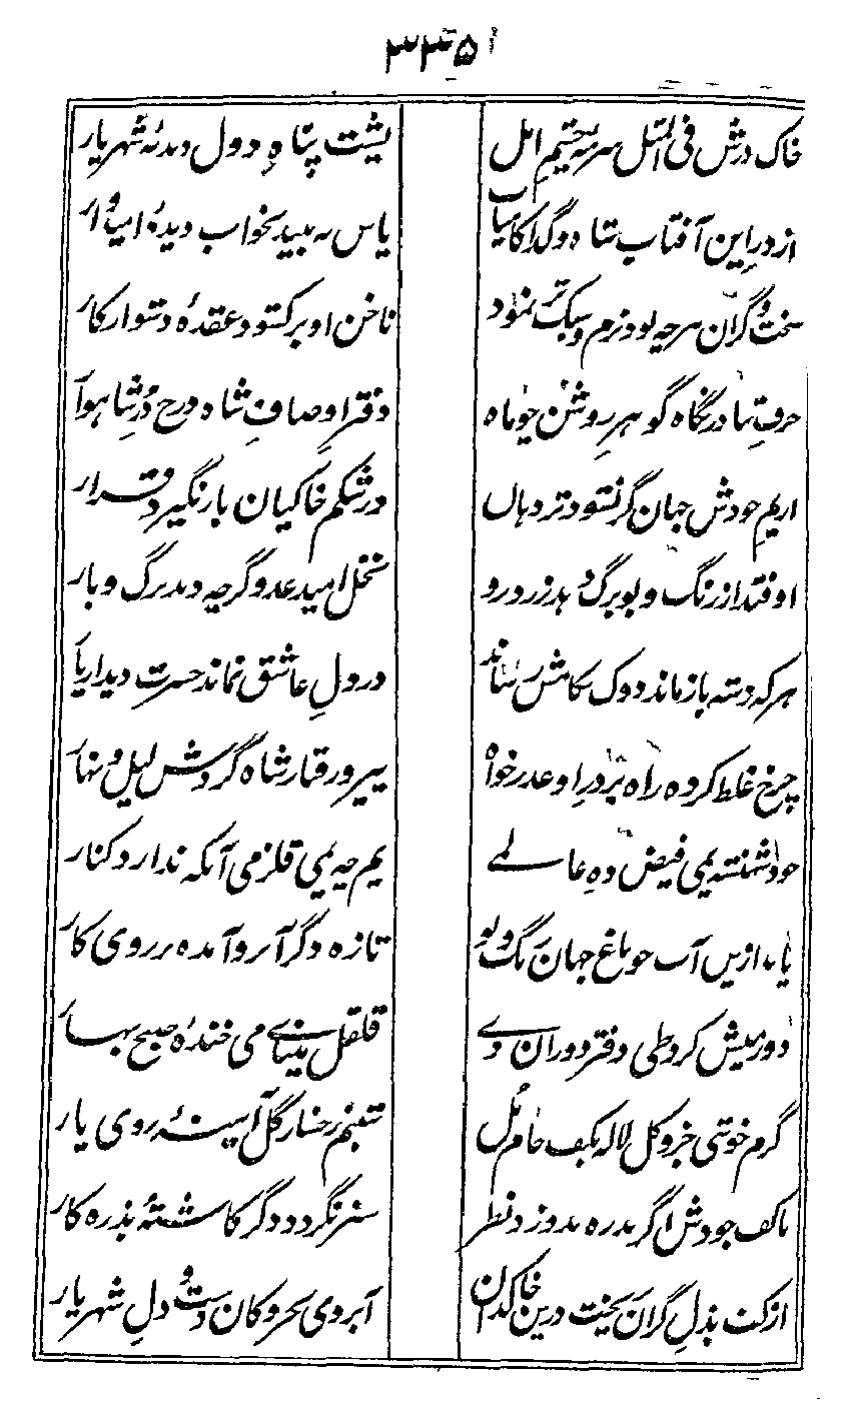 خاک درش فی المثل سرمه چشم امل پشت پناه دول دیدهٔ شهریار
از در این آفتاب شاه و گدا کامیاب یاس نه بیند بخواب دیدهٔ امیدوار
سخت و گران هرچه بود نرم و سبک تر نمود ناخن او بر کشود عقدهٔ دشوار کار
حرفِ گاه گوهرِ روشن چو ماه دفتر اوصافِ شاه درج دُرِ شاهوار
ازیم جودش جهان گر نشود تر دهان در شکم خاکیان بار نگیرد قرار
اوفتد از رنگ و بو برگ دهد زرد رو نخل امید عدو گرچه دهد برگ و بار
هر که دشنه باز ماند دوک کامش رساند در دلِ عاشق نماند حسرت دیدار یار
چرخ غلط کرده راه بر درِ او عذر خواه پیرو رفتار شاه گردش لیل و نهار
جودش یمی فیض دهِ عالمے یم چه یمی قلزمی آنکه ندارد کنار
ازین آب جو باغ جهان رنگ و بو تازه دگر آبرو آمده بر روی کار
دور میش کرد طی دفتر دوران دے قلقل مینائے می خندهٔ صبح بہار
گرم خوشی جزو کل لاله بکف جام مُل شبنم رخسار گل آیینهٔ روی یار
با کف جودش اگر بدره بدوزد نظر سبز نگردد دگر کاشتهٔ بذره کار
از کف بذلِ گران ریخت درین خاکدان آبروی بحر و کان دست و دلِ شهریار